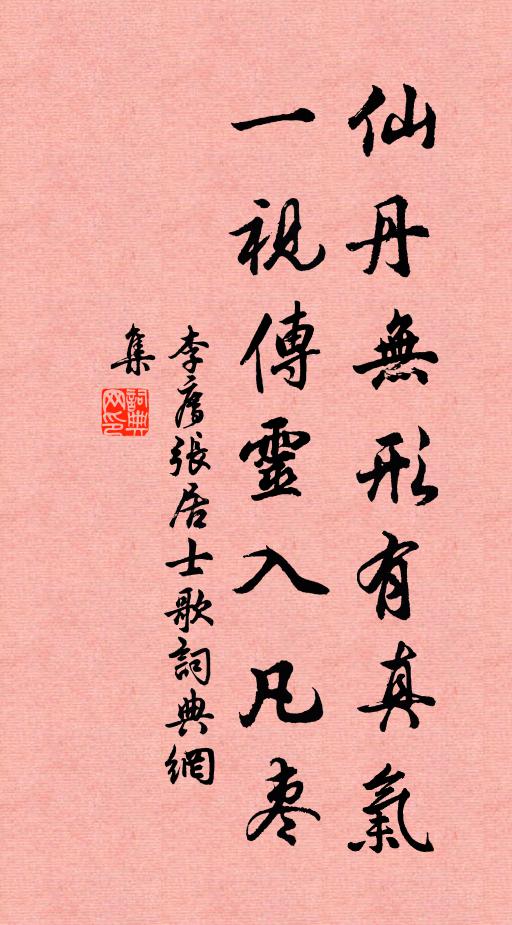 仙丹無形有真氣
一視傳靈入凡枣
李廌張居士歌詞典網
集
詞典
网印